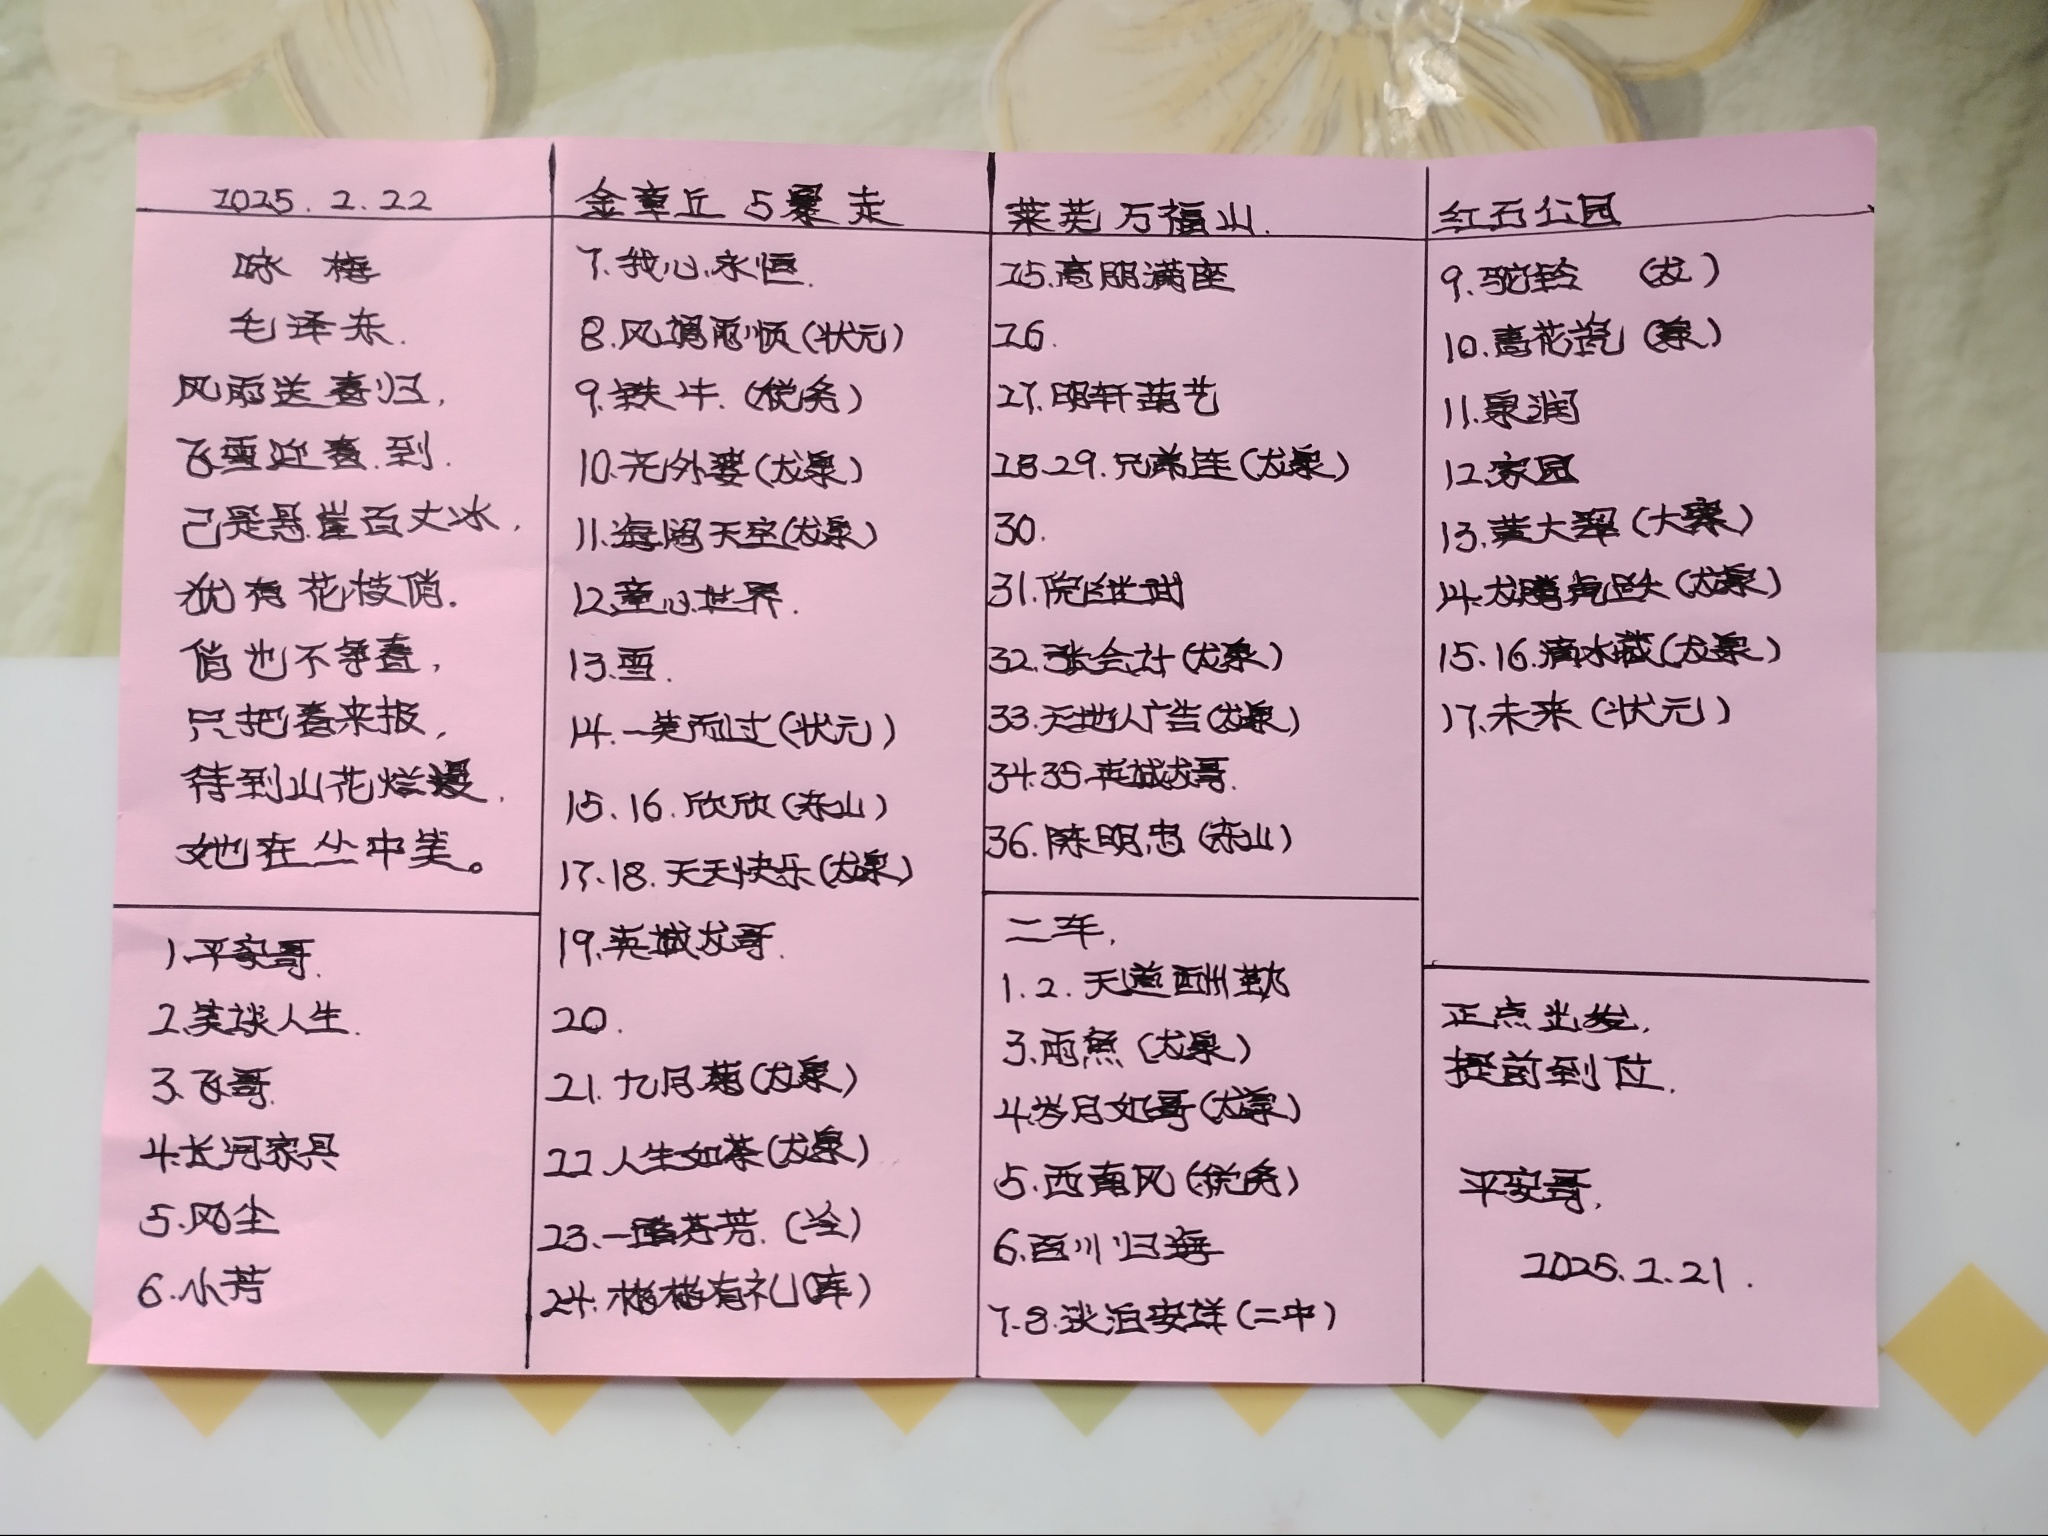 2025.2.22
咏梅
毛泽东.
风雨送春归,
飞雪迎春到.
己是悬崖百丈冰,
犹有花枝俏.
俏也不争春,
只把春来报,
待到山花烂漫.
她在丛中笑。
1.平安哥.
2.笑谈人生.
3.飞哥.
4.长河家具
5.风尘
6.小芳
金章丘 5暴走
7.我心永恒.
8.风调雨顺(状元)
9.铁牛.(税务)
10.无外婆(龙泉)
11.海阔天空(龙泉)
12.童心世界.
13.雪.
14.一笑而过(状元)
15.16.欣欣(东山)
17.18.天天快乐(龙泉)
19.英城龙哥.
20.
21.九月菊(龙泉)
22.人生如茶(龙泉)
23.一路芬芳.
24.格格有礼(库)
莱芜万福山.
25.高朋满座
26.
27.明轩茜艺
28.29.兄弟连(龙泉)
30.
31.
32.张会计(龙泉)
33.天地人广告(龙泉)
34.35.英城龙哥.
36.陈明忠(东山)
二车.
1.2.天道酬勤
3.雨鱼(龙泉)
4.岁月如哥(龙泉)
5.西南风(税务)
6.百川归海
7.8.淡泊安祥(二中)
红石公园
9.驼铃 (龙)
10.喜花莞(泉)
11.泉润
12.家园
13.黄大犟(大寨)
14.龙腾虎跃(龙泉)
15.16.滴水藏(龙泉)
17.未来(状元)
正点出发,
提前到位.
平安哥.
2025.2.21.